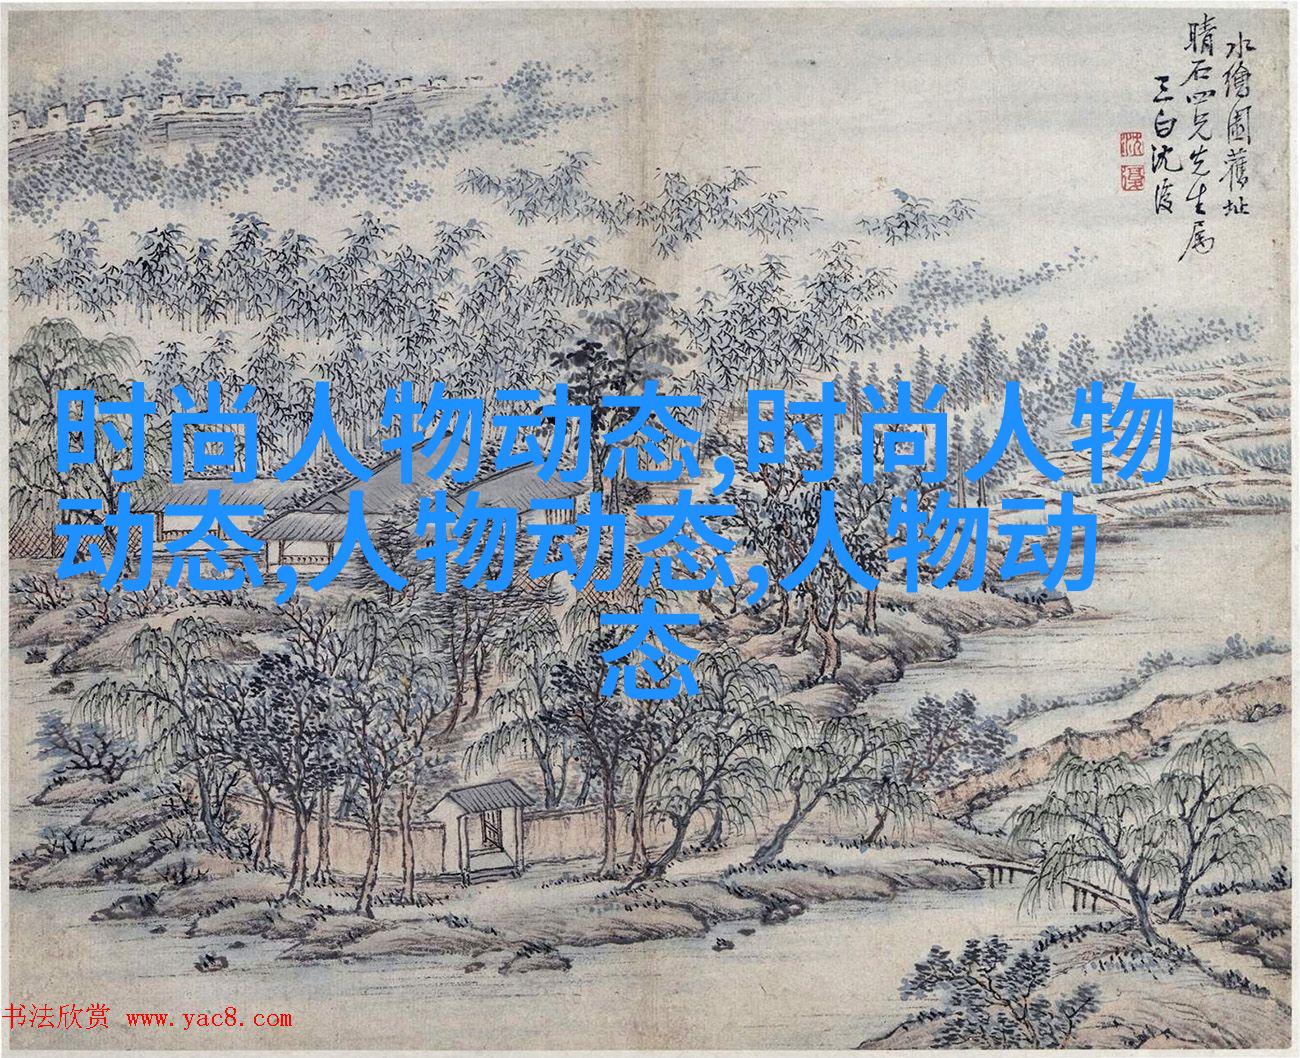 水繪園舊址
晴石四兄先生属
三白沈复
沈
复
时尚人物动态,时尚人物
动态,人物动态,人物动
态
书法欣赏 www.yac8.com